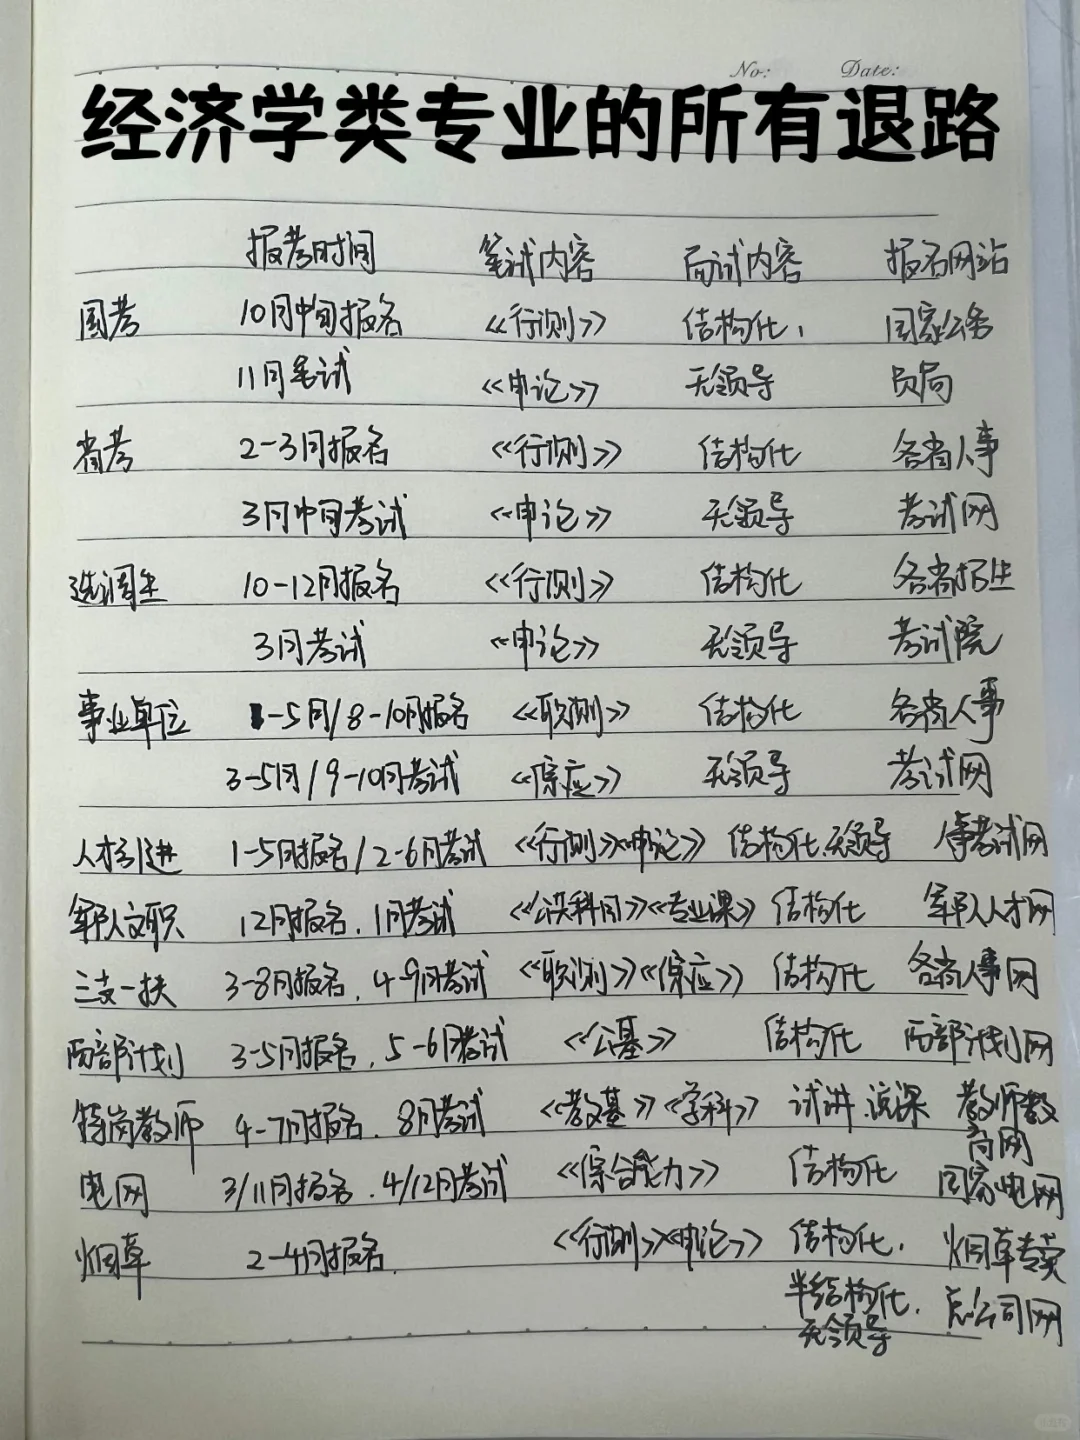 No: Date:
经济学类专业的所有退路
报考时间 笔试内容 面试内容 报名网站
国考 10月中旬报名 《行测》 结构化, 国家公务
11月笔试 《申论》 无领导 员局
省考 2-3月报名 《行测》 结构化 各省人事
3月中旬考试 《申论》 无领导 考试网
选调生 10-12月报名 《行测》 结构化 各省招生
3月考试 《申论》 无领导 考试院
事业单位 1-5月/8-10月报名 《职测》 结构化 各省人事
3-5月/9-10月考试 《综应》 无领导 考试网
人才引进 1-5月报名/2-6月考试 《行测》《申论》 结构化.无领导 人事考试网
军队文职 12月报名.1月考试 《公共科目》《专业课》 结构化 军队人才网
三支一扶 3-8月报名.4-9月考试 《职测》《综应》 结构化 各省人事网
西部计划 3-5月报名.5-6月考试 《公基》 结构化 西部计划网
特岗教师 4-7月报名.8月考试 《教基》《学科》 试讲.说课 教师教
育网
电网 3/11月报名.4/12月考试 《综合能力》 结构化 国家电网
烟草 2-4月报名. 《行测》《申论》 结构化, 烟草专卖
半结构化, 总公司网
无领导